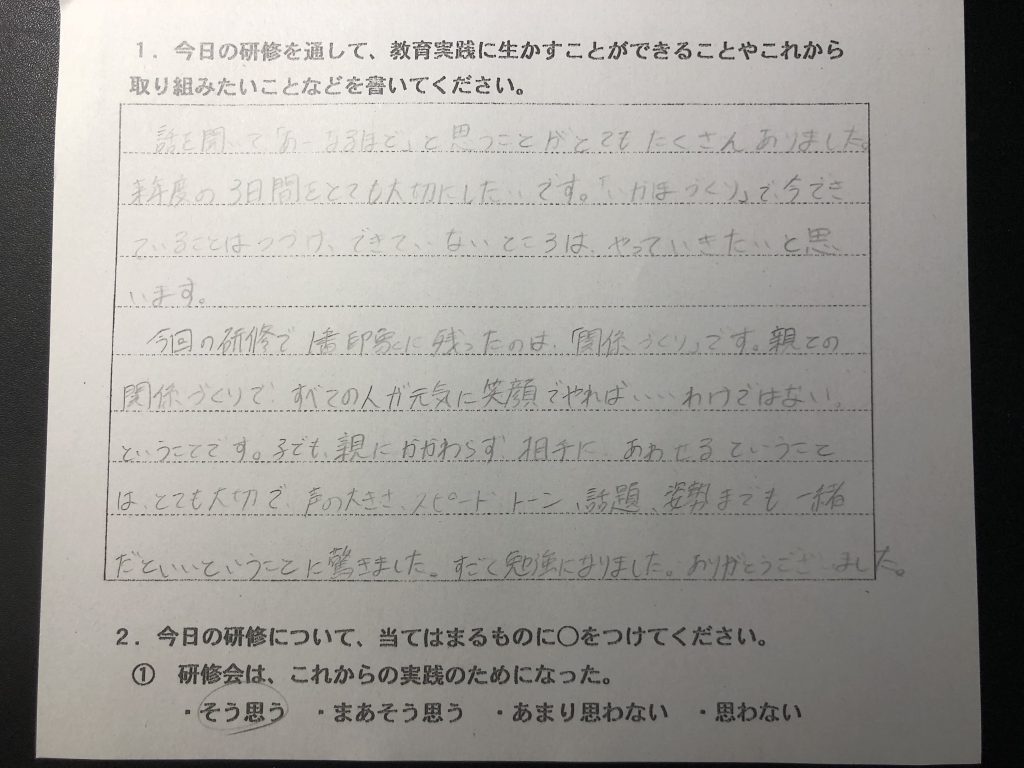 1．今日の研修を通して、教育実践に生かすことができることやこれから
取り組みたいことなどを書いてください。
話を聞いて「あーなるほど」と思うことがとてもたくさんありました。
来年度の3日間をとても大切にしたいです。「いかほづくり」で、今でき
ていることはつづけ、できていないところは、やっていきたいと思
います。
今回の研修で1番印象に残ったのは、「関係づくり」です。親との
関係づくりで、すべての人が元気に笑顔でやればいいわけではない。
ということです。子でも、親にかかわらず相手に、あわせるていうこと
は、とても大切で、声の大きさ、スピード、トーン、話題、姿勢までも一緒
だといいということに驚きました。すごく勉強になりました。ありがとうございました。
2．今日の研修について、当てはまるものに〇をつけてください。
① 研修会は、これからの実践のためになった。
・そう思う ・まあそう思う ・あまり思わない ・思わない